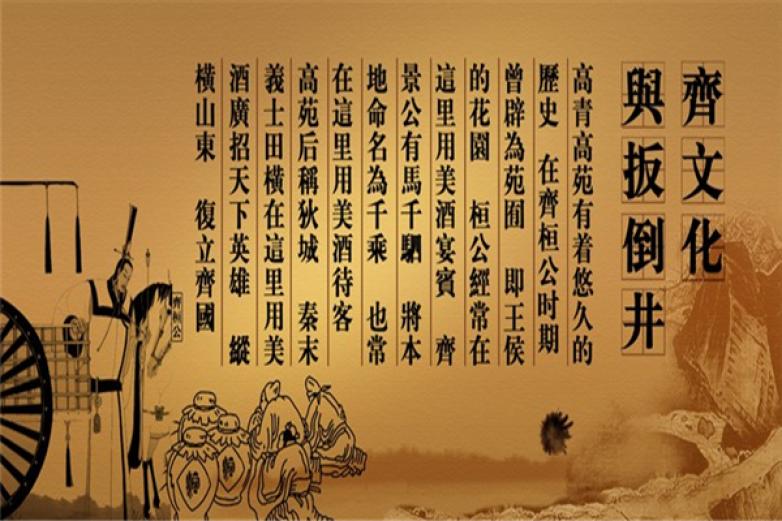 齊文化
與扳倒井
高青高苑有着悠久的
歷史 在齊桓公时期
曾辟為苑囿 即王侯
的花園 桓公經常在
這里用美酒宴賓 齊
景公有馬千駟 將本
地命名為千乘 也常
在這里用美酒待客
高苑后稱狄城 秦末
義士田橫在這里用美
酒廣招天下英雄 縱
橫山東 復立齊國
齊桓公